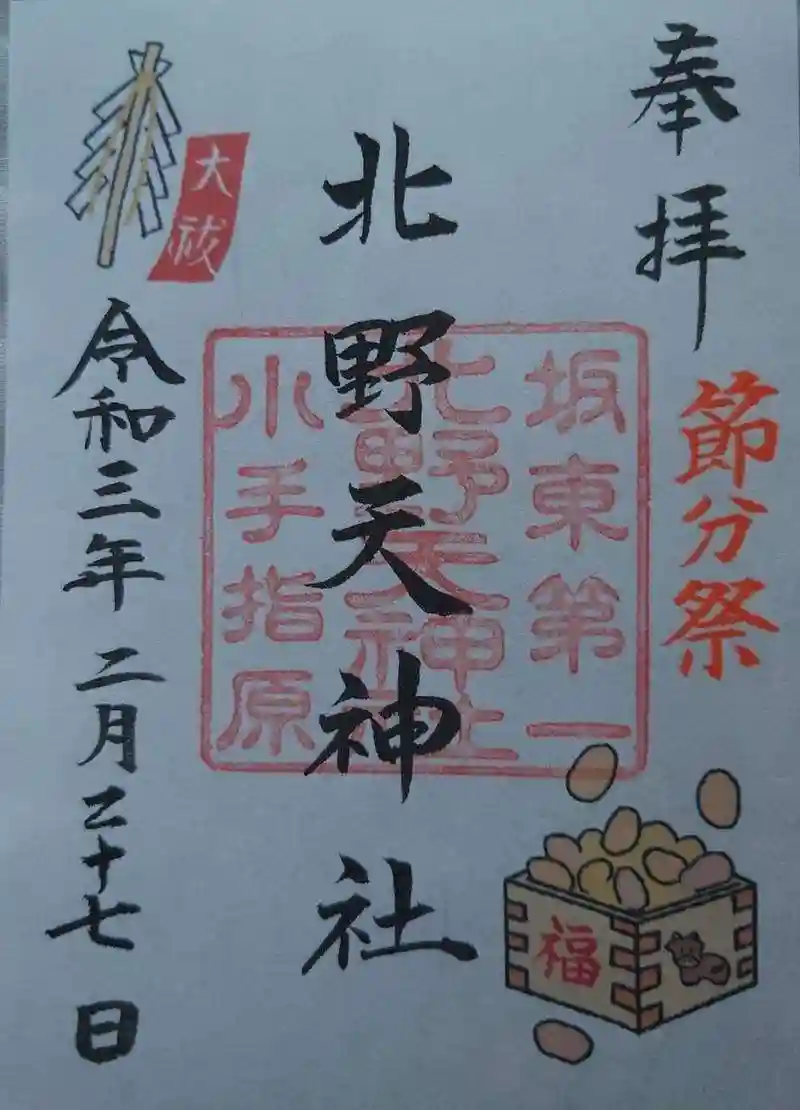 奉拝
節分祭
福
北野天神社
坂東第一
北野天神社
小手指原
大祓
令和三年二月二十七日